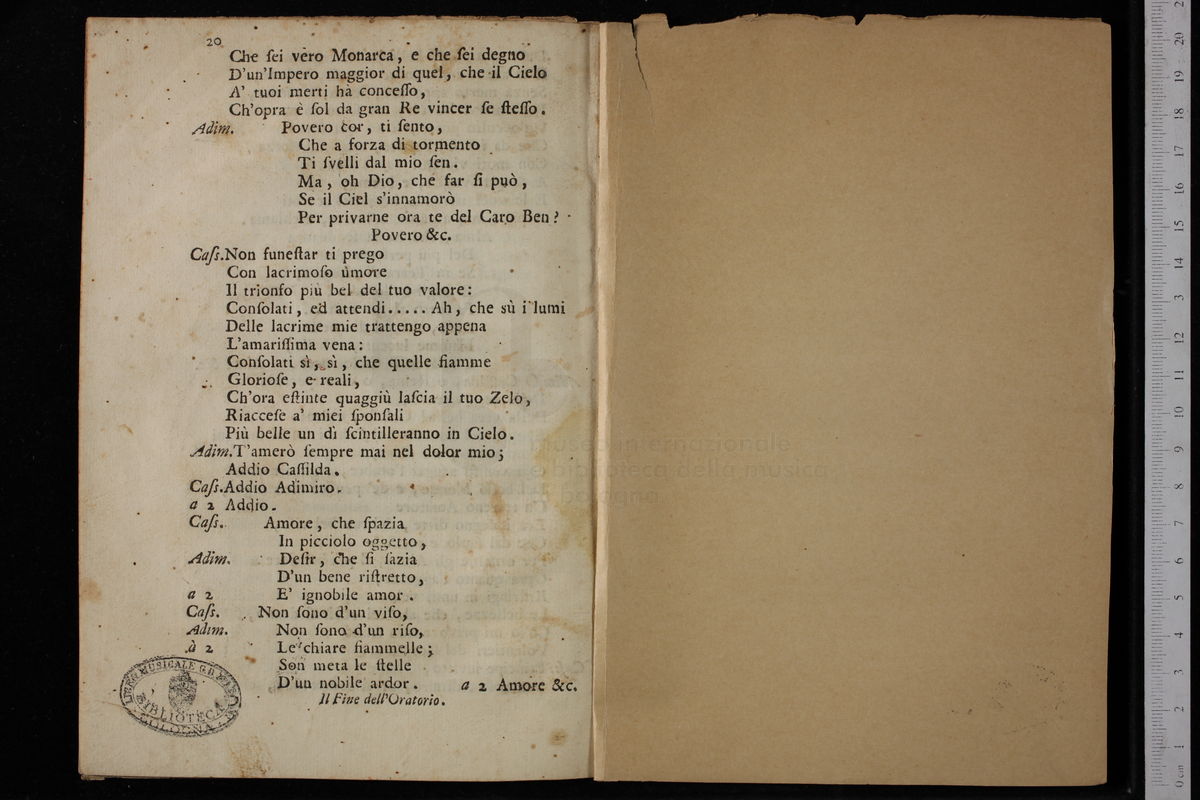 20
Che ſei vero Monarca, e che ſei degno
D'un'Impero maggior di quel, che il Cielo
A' tuoi merti hà conceſſo,
Ch'opra è ſol da gran Re vincer ſe ſteſſo.
Adim. Povero cor, ti ſento,
Che a forza di tormento
Ti ſvelli dal mio ſen.
Ma, oh Dio, che far ſi può,
Se il Ciel s'innamorò
Per privarne ora te del Caro Ben?
Povero &c.
Caſſ. Non funeſtar ti prego
Con lacrimoſo umore
Il trionfo più bel del tuo valore:
Conſolati, ed attendi..... Ah, che sù i lumi
Delle lacrime mie trattengo appena
L'amariſſima vena:
Conſolati sì, sì, che quelle fiamme
Glorioſe, e reali,
Ch'ora eſtinte quaggiù laſcia il tuo Zelo,
Riacceſe a' miei ſponſali
Più belle un dì ſcintilleranno in Cielo.
Adim. T'amerò ſempre mai nel dolor mio;
Addio Caſſilda.
Caſſ. Addio Adimiro.
a 2 Addio.
Caſſ. Amore, che ſpazia
In picciolo oggetto,
Adim. Deſir, che ſi ſazia
D'un bene riſtretto,
a 2 E' ignobile amor.
Caſſ. Non ſono d'un viſo,
Adim. Non ſono d'un riſo,
à 2 Le chiare fiammelle;
Son meta le ſtelle
D'un nobile ardor. a 2 Amore &c.
Il Fine dell'Oratorio.
LICEO MUSICALE G.B. MARTINI
BIBLIOTECA
BOLOGNA
museo internazionale
e biblioteca della musica
bologna
0 cm 1 2 3 4 5 6 7 8 9 10 11 12 13 14 15 16 17 18 19 20